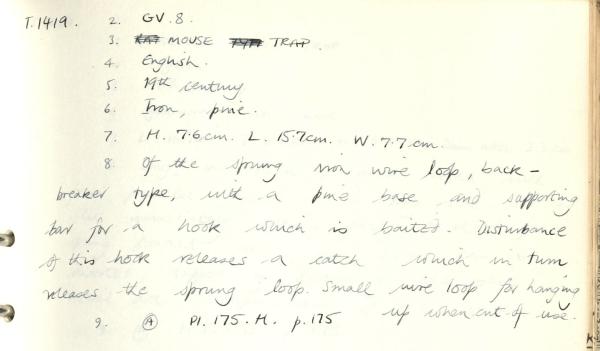 T.1419. 2. GV.8.
3. RAT MOUSE TRAP.
4. English.
5. 19th century
6. Iron, pine.
7. H. 7.6cm. L. 15.7cm. W. 7.7cm.
8. Of the sprung iron wire loop, back-
breaker type, with a pine base and supporting
bar for a hook which is baited. Disturbance
of this hook releases a catch which in turn
releases the sprung loop. Small wire loop for hanging
up when out of use.
9. A Pl. 175. H. p.175